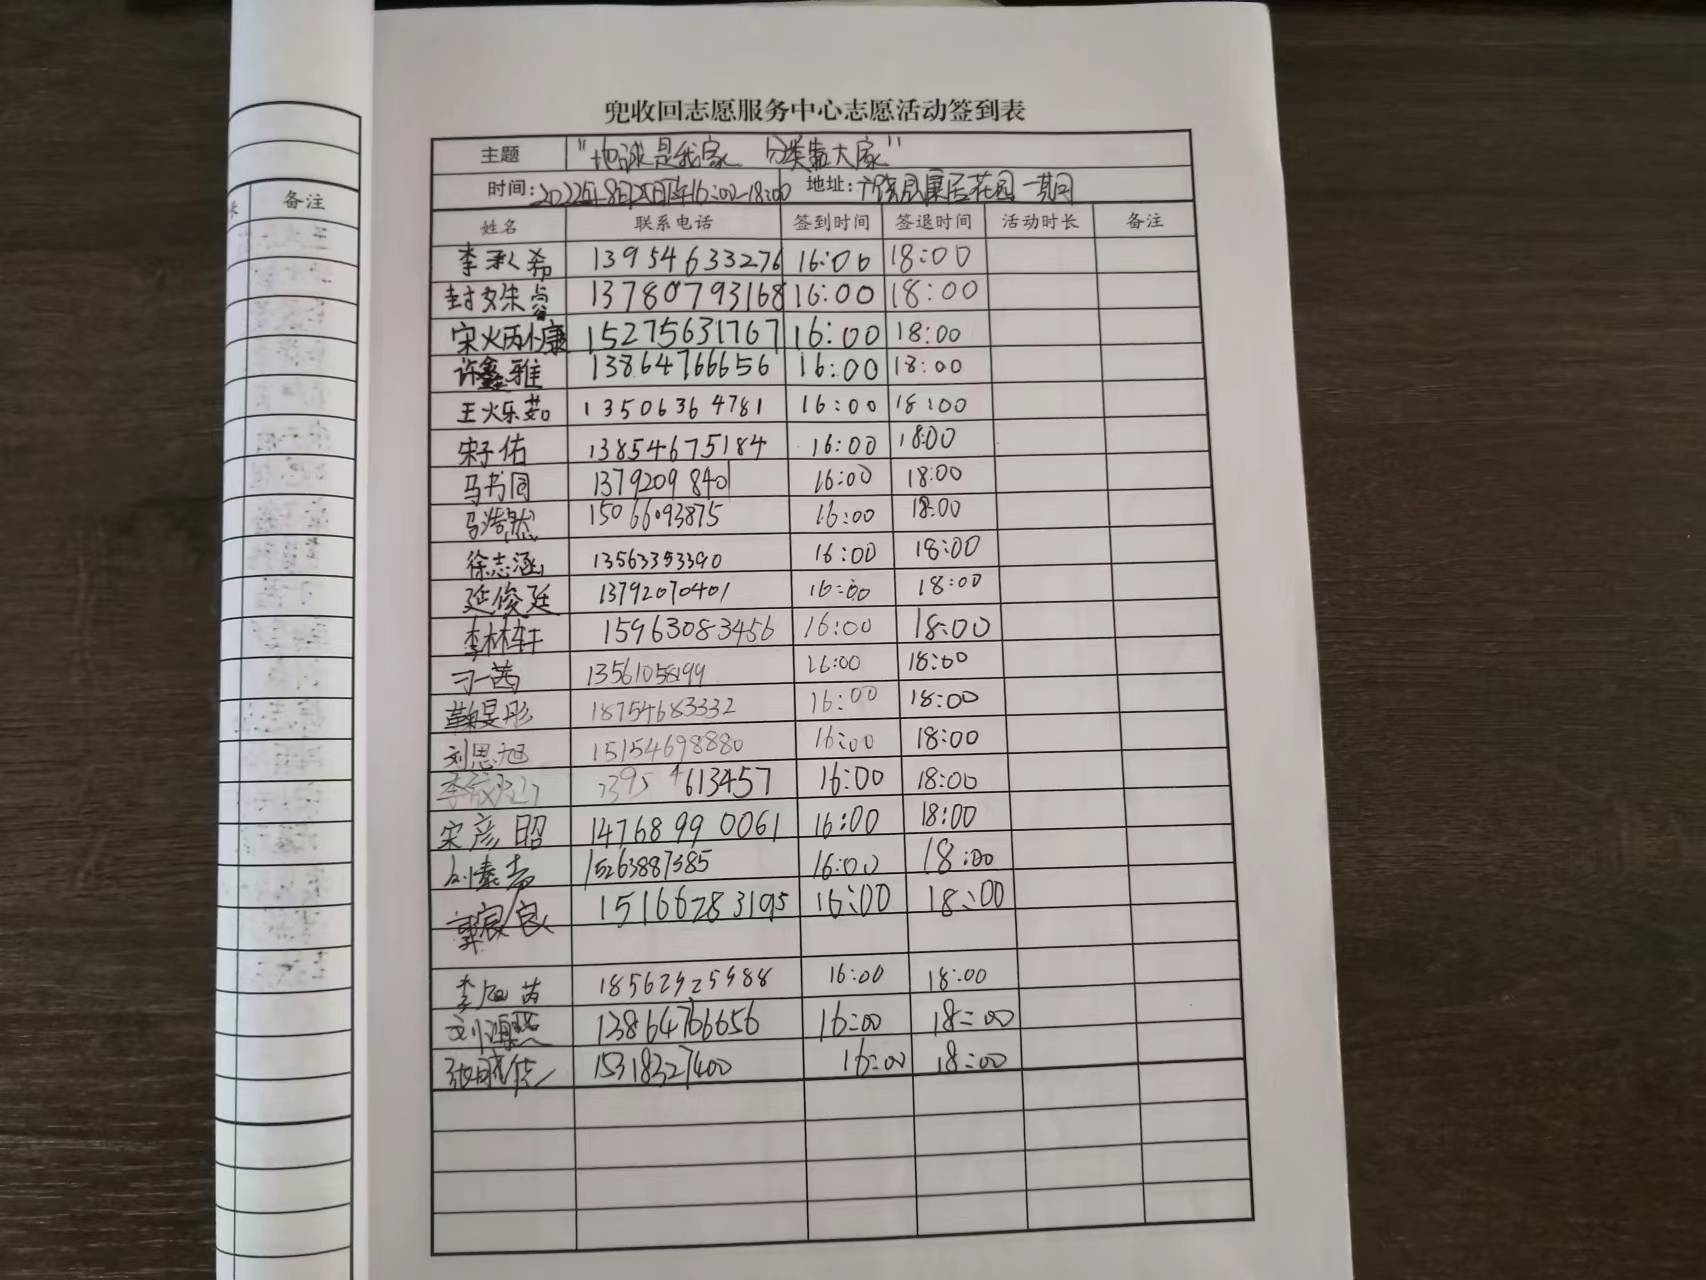 兜收回志愿服务中心志愿活动签到表
主题 "地球是我家 分类靠大家"
时间:2022年8月25日下午16:00-18:00 地址: 康居花园一期
备注
姓名 联系电话 签到时间 签退时间 活动时长 备注
李承希 13954633276 16:00 18:00
封姝睿 13780793168 16:00 18:00
宋炳慷 15275631767 16:00 18:00
许鑫雅 13864766656 16:00 18:00
王烁茹 13506364781 16:00 18:00
宋子佑 13854675184 16:00 18:00
马书同 13792098401 16:00 18:00
马浩然 15066093875 16:00 18:00
徐志涵 13563353390 16:00 18:00
延俊廷 13792070401 16:00 18:00
李林轩 15963083456 16:00 18:00
刁一茜 13561058199 16:00 18:00
鞠旻彤 18754683332 16:00 18:00
刘思旭 15154698880 16:00 18:00
李 13954613457 16:00 18:00
宋彦昭 14768990061 16:00 18:00
刘 15263887385 16:00 18:00
郭宸良 15166283195 16:00 18:00
李 芮 18562925988 16:00 18:00
刘 13864766656 16:00 18:00
张 15318327400 16:00 18:00